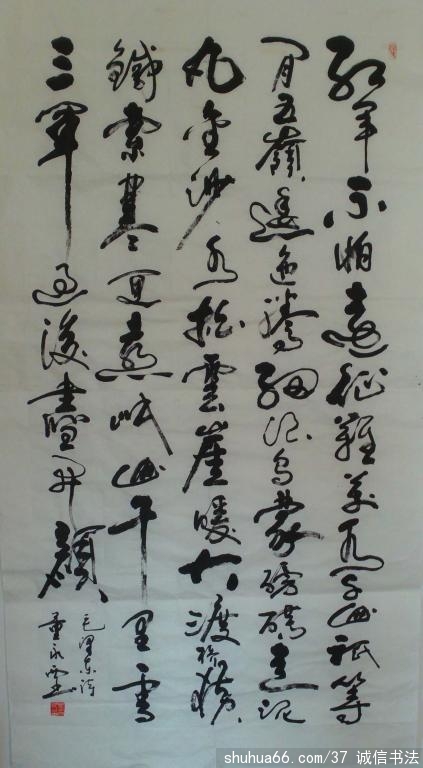 紅軍不怕遠征難萬水千山祇等
閒五嶺逶迤騰細浪烏蒙磅礴走泥
丸金沙水拍雲崖暖大渡橋橫
鐵索寒更喜岷山千里雪
三軍過後盡開顏
毛澤東詩
董永
shuhua66.com/37 诚信书法